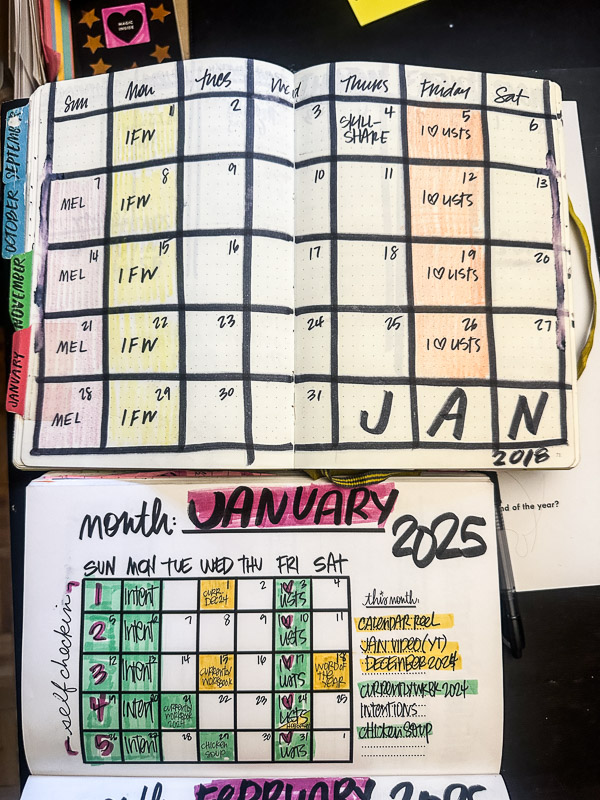 MAGIC
INSIDE
OCTOBER SEPTEMBER
NOVEMBER
JANUARY
Sun Mon Tues Wed Thurs Friday Sat
1 2 3 4 5 6
IFW SKILL-
SHARE I ♡ LISTS
7 8 9 10 11 12 13
MEL IFW I ♡ LISTS
14 15 16 17 18 19 20
MEL IFW I ♡ LISTS
21 22 23 24 25 26 27
MEL IFW I ♡ LISTS
28 29 30 31
MEL IFW JAN
2018
nd of the year?
month: JANUARY
2025
SUN MON TUE WED THU FRI SAT
self checkin
1 Intent 1 2 3 4
CURR
DEC24 ♡
LISTS
2 Intent 7 8 9 10 11
♡
LISTS
3 Intent 14 15 16 17 18
CURRENTLY
WORKBOOK ♡
LISTS WORD OF
THE
YEAR
4 Intent 21 22 23 24 25
CURRENTLY
♡
LISTS
5 Intent 28 29 30 31 1
CHICKEN
SOUP ♡
LISTS
this month:
CALENDAR REEL
JAN VIDEO (YT)
DECEMBER 2024
CURRENTLY WORK 2024
INTENTIONS
CHICKEN SOUP
FEBRUARY 2025